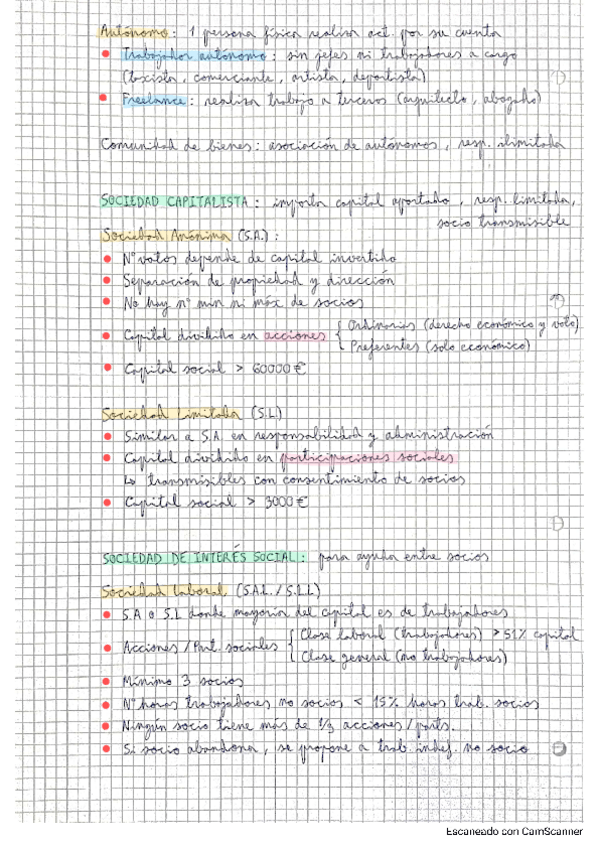 Autónomo: 1 persona física realiza act. por su cuenta
• Trabajador autónomo: sin jefes ni trabajadores a cargo
(taxista, comerciante, artista, deportista)
• Freelance: realiza trabajo a terceros (arquitecto, abogado)
Comunidad de bienes: asociación de autónomos, resp. ilimitada
SOCIEDAD CAPITALISTA: importa capital aportado, resp. limitada,
socio transmisible
Sociedad Anónima (S.A.):
• Nº votos depende de capital invertido
• Separación de propiedad y dirección
• No hay nº min ni máx de socios
• Capital dividido en acciones { Ordinarias (derecho económico y voto)
Preferentes (solo económico)
• Capital social > 60000€
Sociedad Limitada (S.L)
• Similar a S.A. en responsabilidad y administración
• Capital dividido en participaciones sociales
↳ transmisibles con consentimiento de socios
• Capital social > 3000€
SOCIEDAD DE INTERÉS SOCIAL: para ayuda entre socios
Sociedad Laboral (S.A.L. / S.L.L)
• S.A o S.L donde mayoría del capital es de trabajadores
• Acciones / Part. sociales { Clase laboral (trabajadores) > 51% capital
Clase general (no trabajadores)
• Mínimo 3 socios
• Nº horas trabajadores no socios < 15% horas trab. socios
• Ningún socio tiene más de 1/3 acciones / parts.
• Si socio abandona, se propone a trab. indef. no socio
Escaneado con CamScanner